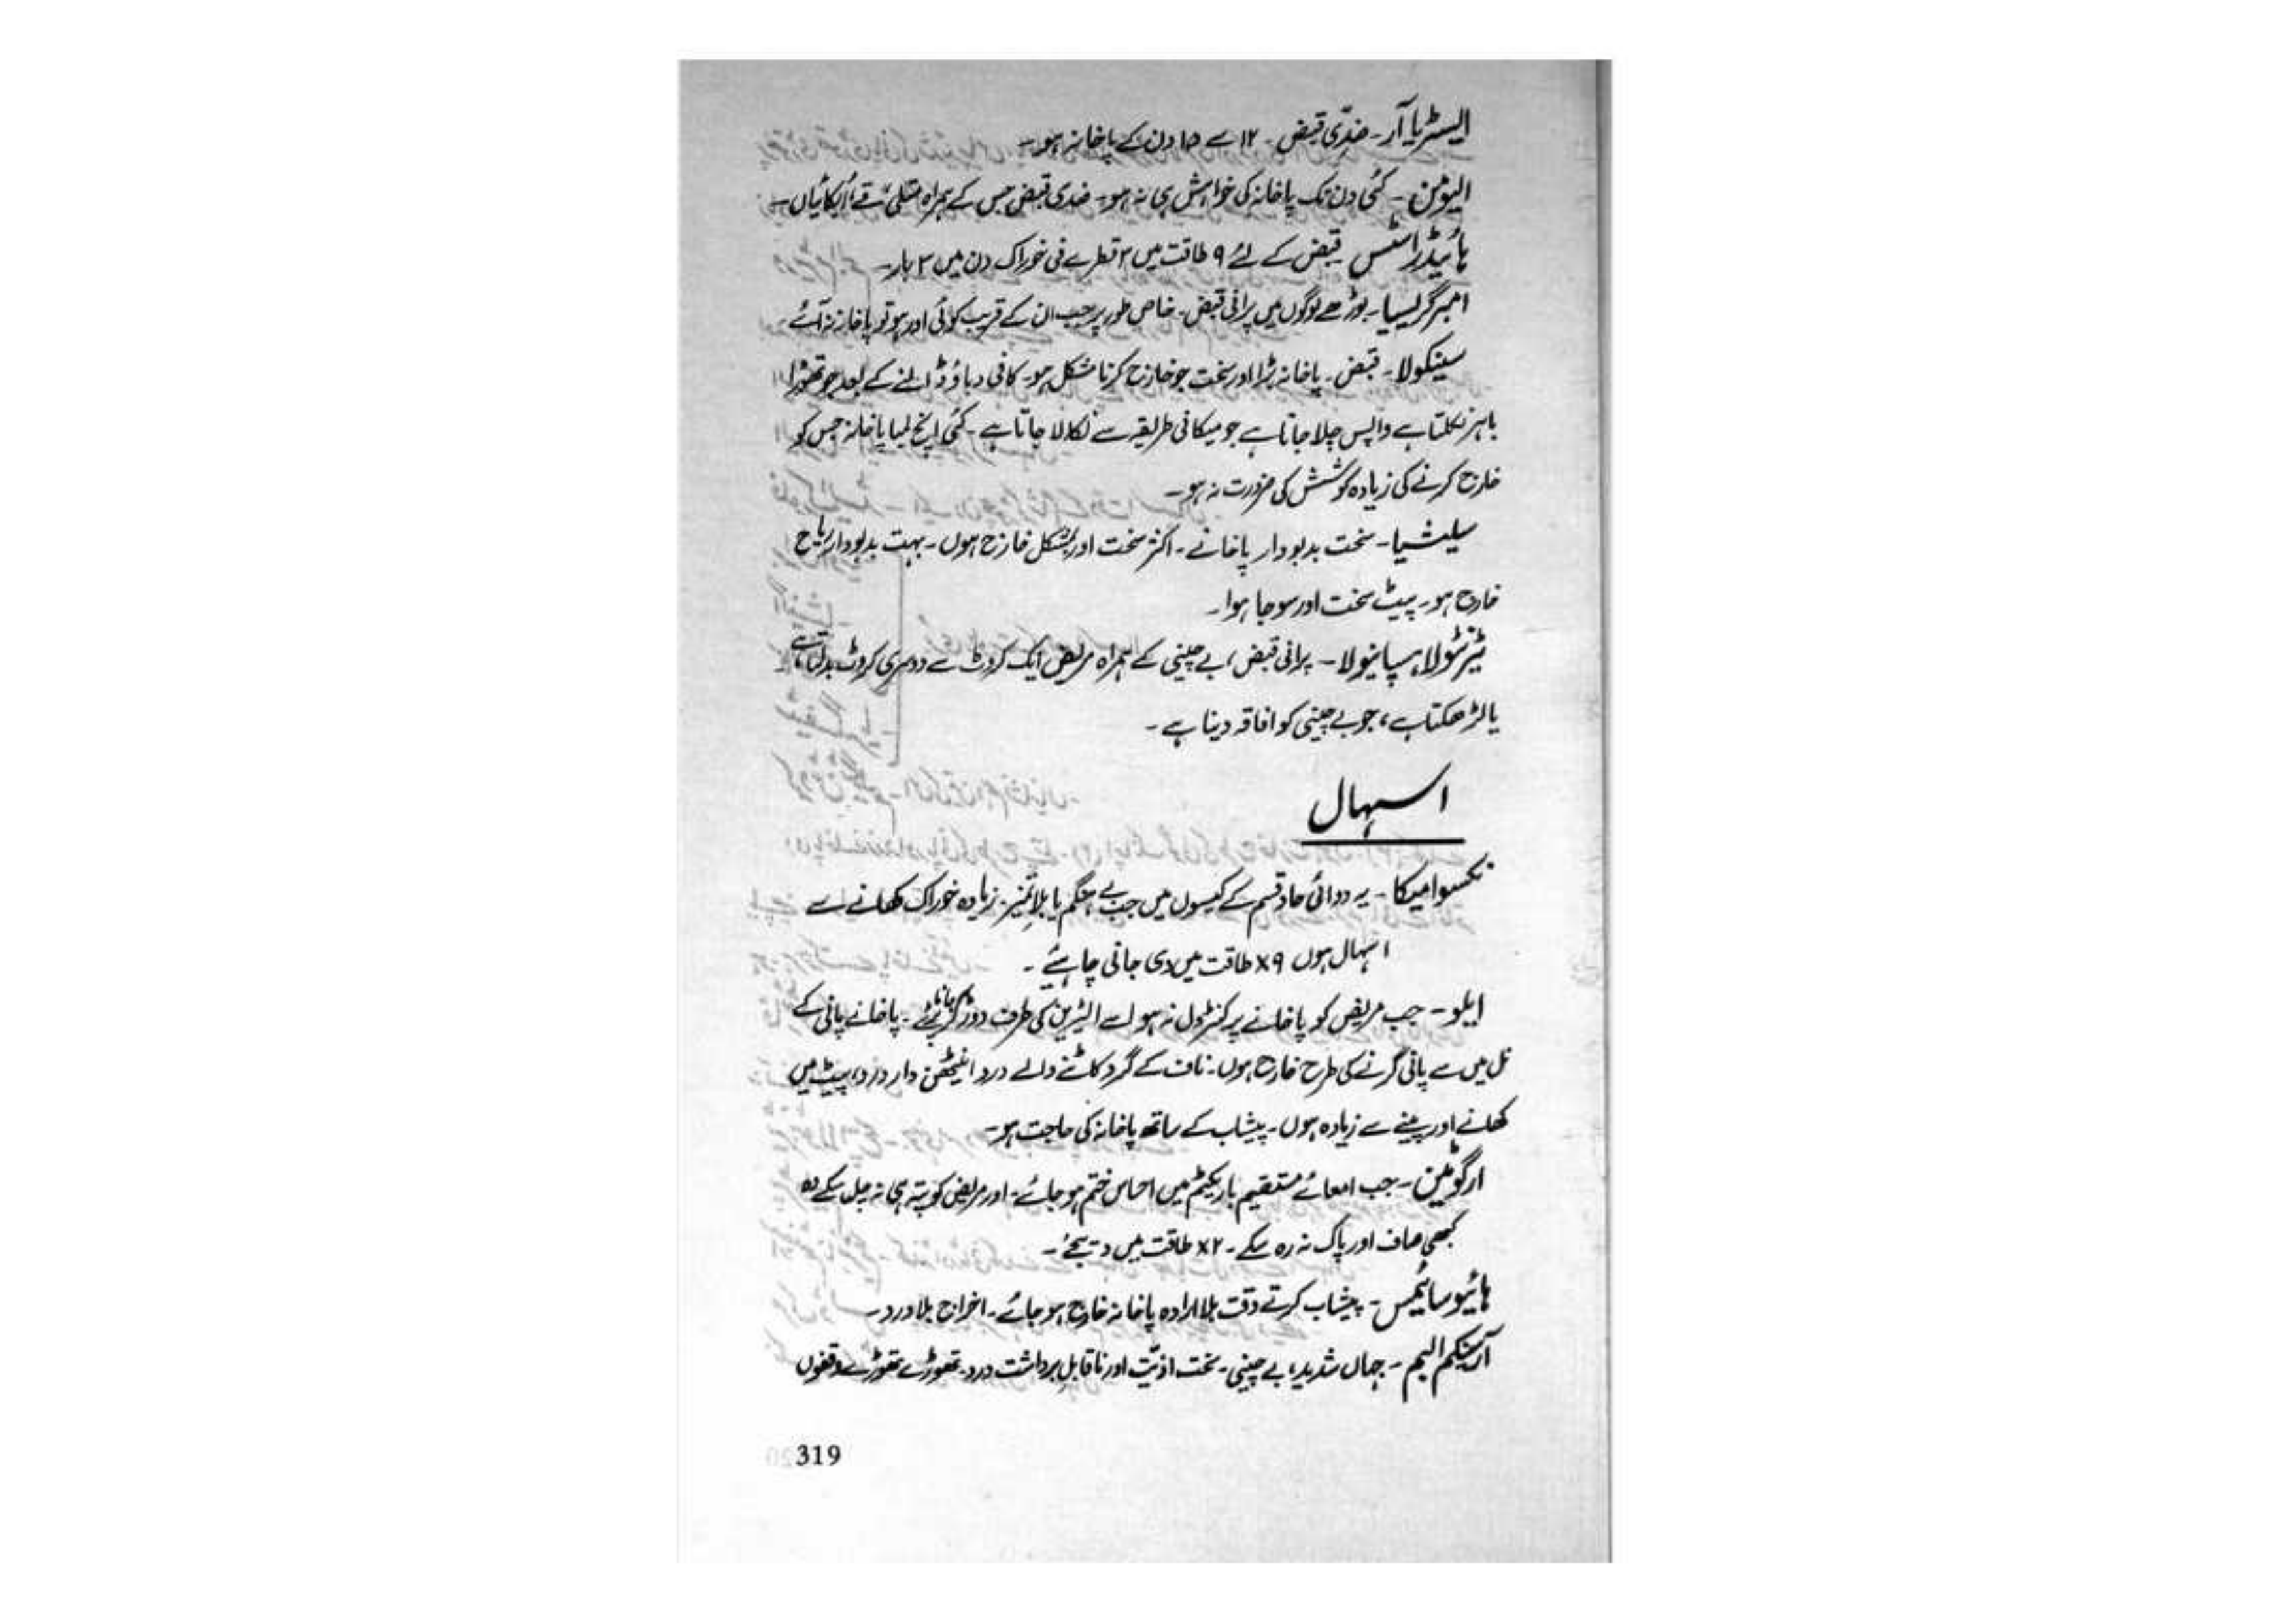 السٹریا آر۔ ضدّی قبض۔ ۱۲ سے ۱۵ دن کے پاخانہ ہو۔
الیومن۔ کئی دن تک پاخانہ کی خواہش ہی نہ ہو۔ ضدی قبض جس کے ہمراہ متلی، قے، اُبکائیاں۔
ہائیڈراسٹس قبض کے لئے ۹ طاقت میں ۲ قطرے فی خوراک دن میں ۳ بار۔
امبرگریسیا۔ بوڑھے لوگوں میں پرانی قبض۔ خاص طور پر جب ان کے قریب کوئی اور ہو تو پاخانہ نہ آئے
سینکولا۔ قبض۔ پاخانہ بڑا اور سخت جو خارج کرنا مشکل ہو۔ کافی دباؤ ڈالنے کے بعد جو تھوڑا
باہر نکلتا ہے واپس چلا جاتا ہے جو میکانی طریقہ سے نکالا جاتا ہے۔ کئی انچ لمبا پاخانہ جس کو
خارج کرنے کی زیادہ کوشش کی ضرورت نہ ہو۔
سیلیشیا۔ سخت بدبودار پاخانے۔ اکثر سخت اور بمشکل خارج ہوں۔ بہت بدبودار ریاح
خارج ہو۔ پیٹ سخت اور سوجا ہوا۔
ٹیرنٹولا ہسپانیولا۔ پرانی قبض، بے چینی کے ہمراہ مریض ایک کروٹ سے دوسری کروٹ بدلتا ہے
یا لڑھکتا ہے، جو بے چینی کو افاقہ دیتا ہے۔
اسہال
نکسوامیکا۔ یہ دوائی حاد قسم کے کیسوں میں جب بے ہنگم یا بلا تمیز۔ زیادہ خوراک کھانے سے
اسہال ہوں x۹ طاقت میں دی جانی چاہئے۔
ایلو۔ جب مریض کو پاخانے پر کنٹرول نہ ہو اسے لیٹرین کی طرف دوڑ کر جانا پڑے۔ پاخانے پانی کے
نل میں سے پانی گرنے کی طرح خارج ہوں۔ ناف کے گرد کاٹنے والے درد اینٹھن دار درد، پیٹ میں
کھانے اور پینے سے زیادہ ہوں۔ پیشاب کے ساتھ پاخانہ کی حاجت ہو۔
ارگوٹین۔ جب امعائے مستقیم یا ریکٹم میں احساس ختم ہو جائے۔ اور مریض کو پتہ ہی نہ چل سکے وہ
کبھی صاف اور پاک نہ رہ سکے۔ x۲ طاقت میں دیجئے۔
ہائیوسائیمس۔ پیشاب کرتے وقت بلا ارادہ پاخانہ خارج ہو جائے۔ اخراج بلا درد۔
آرسنیکم البم۔ جہاں شدید، بے چینی۔ سخت اذیّت اور ناقابل برداشت درد۔ تھوڑے تھوڑے وقفوں
319